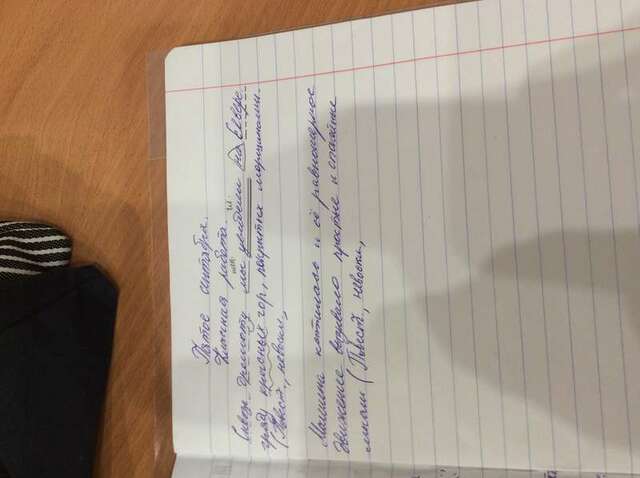 Пятое сентября.
Классная работа.
Сквозь дремоту мы увидели на Севере
гряду красных гор, покрытых морщинами.
(Повест., невоскл,
Машина катилась и её равномерное
движение вызывало простые и спокойные
мысли (Повест., невоскл,